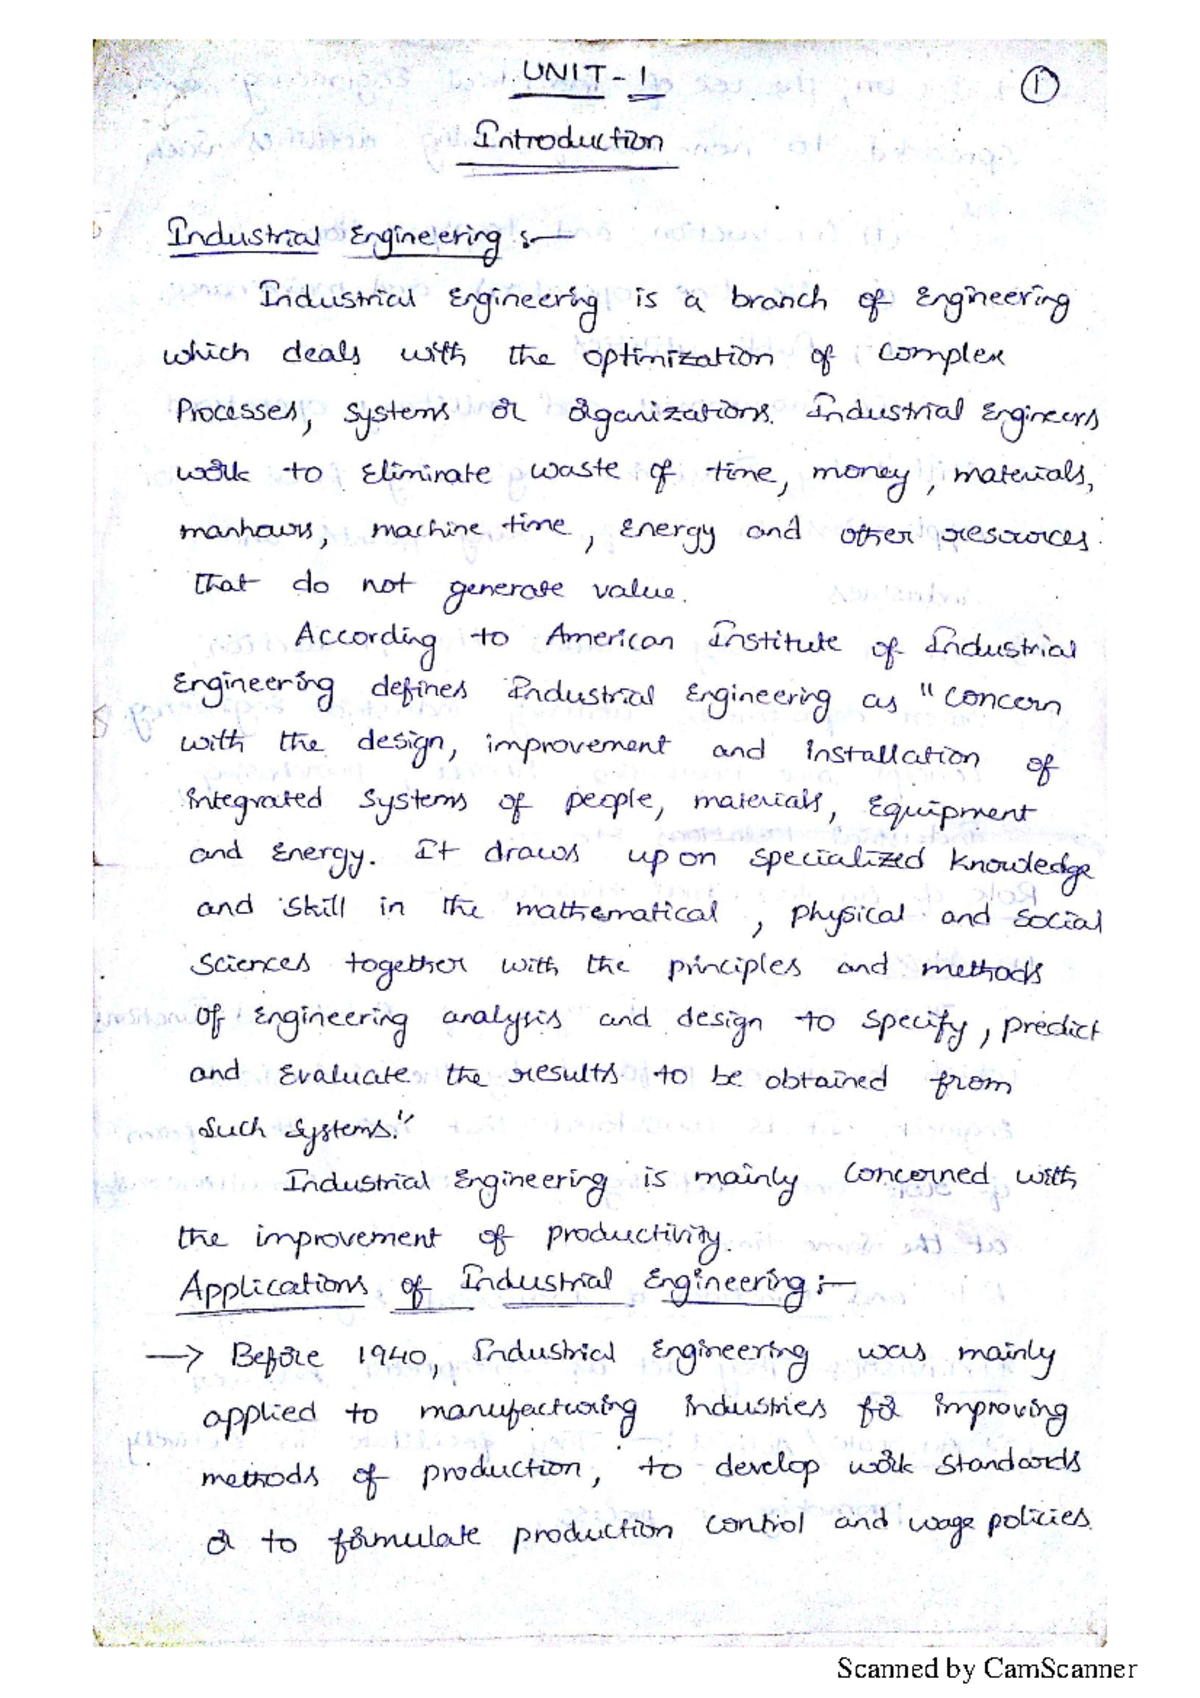 UNIT - 1
1
Introduction
Industrial Engineering :-
Industrial Engineering is a branch of Engineering
which deals with the optimization of complex
Processes, systems or organizations. Industrial Engineers
work to Eliminate waste of time, money, materials,
manhours, machine time, Energy and other resources
that do not generate value.
According to American Institute of Industrial
Engineering defines Industrial Engineering as "Concern
with the design, improvement and installation of
integrated systems of people, materials, Equipment
and Energy. It draws upon specialized knowledge
and skill in the mathematical, physical and social
sciences together with the principles and methods
of Engineering analysis and design to specify, predict
and Evaluate the results to be obtained from
such systems."
Industrial Engineering is mainly concerned with
the improvement of productivity.
Applications of Industrial Engineering :-
→ Before 1940, Industrial Engineering was mainly
applied to manufacturing industries for improving
methods of production, to develop work standards
or to formulate production control and wage policies.
Scanned by CamScanner